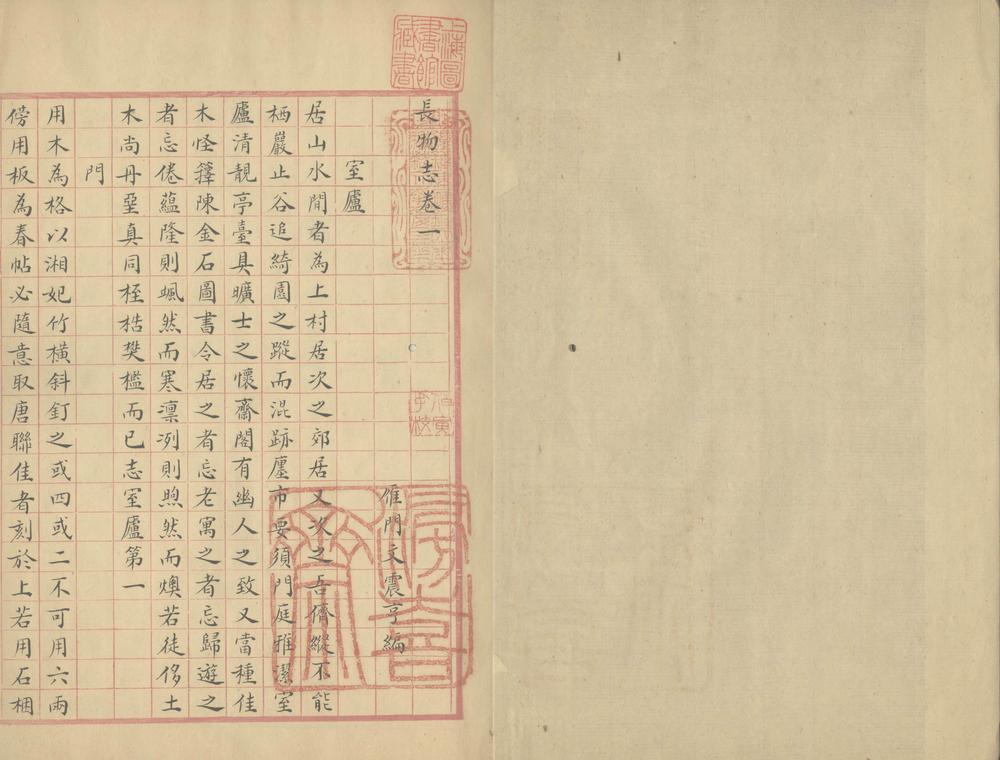 長物志卷一
雁門文震亨編
室廬
居山水間者為上村居次之郊居又次之吾儕縱不能
栖巖止谷追綺園之蹤而混跡廛市要須門庭雅潔室
廬清靚亭臺具曠士之懷齋閣有幽人之致又當種佳
木怪籜陳金石圖書令居之者忘老寓之者忘歸遊之
者忘倦蘊隆則颯然而寒凛冽則煦然而燠若徒侈土
木尚丹堊真同桎梏樊檻而已志室廬第一
門
用木為格以湘妃竹橫斜釘之或四或二不可用六兩
傍用板為春帖必隨意取唐聯佳者刻於上若用石梱
上海圖書館藏書